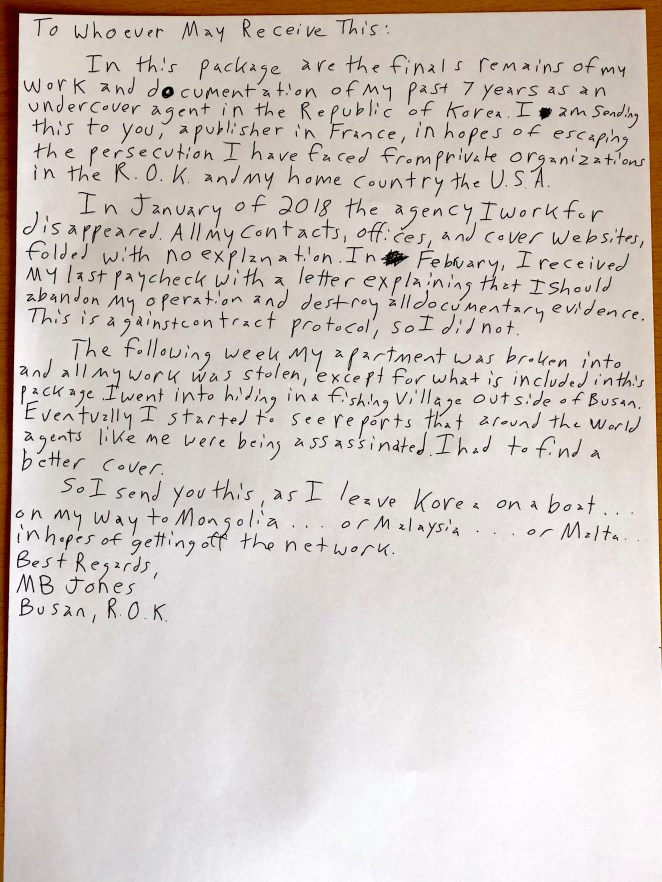 To Whoever May Receive This:
In this package are the finals remains of my
work and documentation of my past 7 years as an
undercover agent in the Republic of Korea. I am sending
this to you, a publisher in France, in hopes of escaping
the persecution I have faced from private organizations
in the R.O.K. and my home country the U.S.A.
In January of 2018 the agency I work for
disappeared. All my contacts, offices, and cover websites,
folded with no explanation. In February, I received
my last paycheck with a letter explaining that I should
abandon my operation and destroy all documentary evidence.
This is against contract protocol, so I did not.
The following week my apartment was broken into
and all my work was stolen, except for what is included in this
package. I went into hiding in a fishing village outside of Busan.
Eventually I started to see reports that around the world
agents like me were being assassinated. I had to find a
better cover.
So I send you this, as I leave Korea on a boat...
on my way to Mongolia... or Malaysia... or Malta...
in hopes of getting off the network.
Best Regards,
MB Jones
Busan, R.O.K.